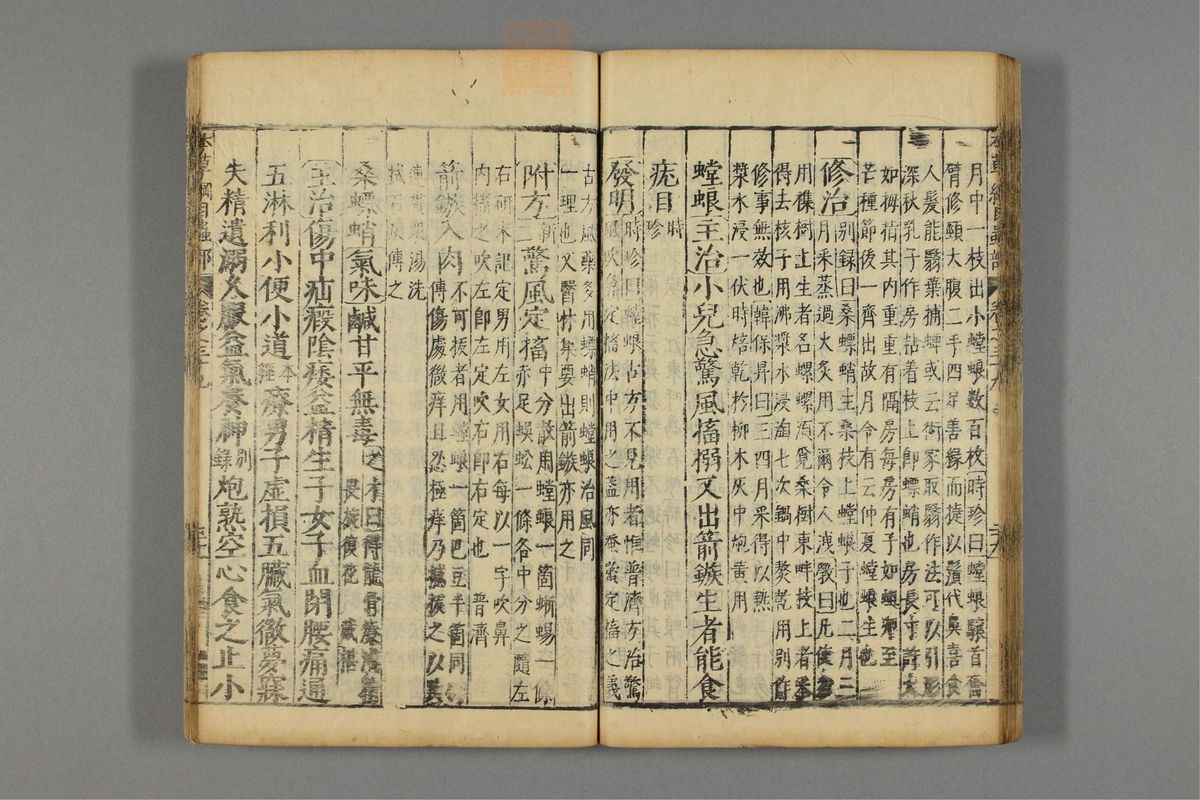 月中一枝出小螳螂數百枚時珍曰螳螂驤首奮
臂修頸大腹二手四足善緣而捷以鬚代鼻喜食
人髮能翳葉捕蟬或云術家取翳作法可以引形
深秋乳子作房粘着枝上卽螵蛸也房長寸許大
如拇指其内重重有隔房每房有子如蛆卵至
芒種節後一齊出故月令有云仲夏螳螂生也
修治別録曰桑螵蛸生桑枝上螳螂子也二月三
月采蒸過火炙用不爾令人洩斅曰凡使
用雜樹上生者名螺螺須覓桑樹東畔枝上者采
得去核子用沸漿水浸淘七次鍋中熬乾用別作
修事無效也韓保昇曰三四月采得以熱
漿水浸一伏時焙乾於柳木灰中炮黄用
螳螂主治小兒急驚風搐搦又出箭鏃生者能食
疣目時珍
發明時珍曰螳螂古方不見用者惟普濟方治驚
風吹鼻定搐法中用之蓋亦蠶蠍定搐之義
古方風藥多用螵蛸則螳螂治風同
一理也又醫林集要出箭鏃亦用之
附方二驚風定搐中分散用螳螂一箇蜥蜴一條
赤足蜈蚣一條各中分之隨左
右研末記定男用左女用右每以一字吹鼻
内搐之吹左卽左定吹右卽右定也普濟
箭鏃入肉不可拔者用螳螂一箇巴豆半箇同
傅傷處微癢且忍極癢乃撼撥之以
連貫衆湯洗
拭石灰傅之
桑螵蛸氣味鹹甘平無毒之才曰得龍骨療洩精
畏旋覆花戴椹
主治傷中疝瘕陰痿益精生子女子血閉腰痛通
五淋利小便水道本經療男子虛損五臟氣微夢寐
失精遺溺久服益氣養神別錄炮熟空心食之止小